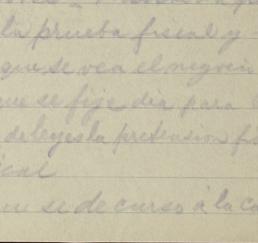 la prueba fiscal y
que se vea el negocio
que se fije dia para
de leyes la pretension
se de curso á la